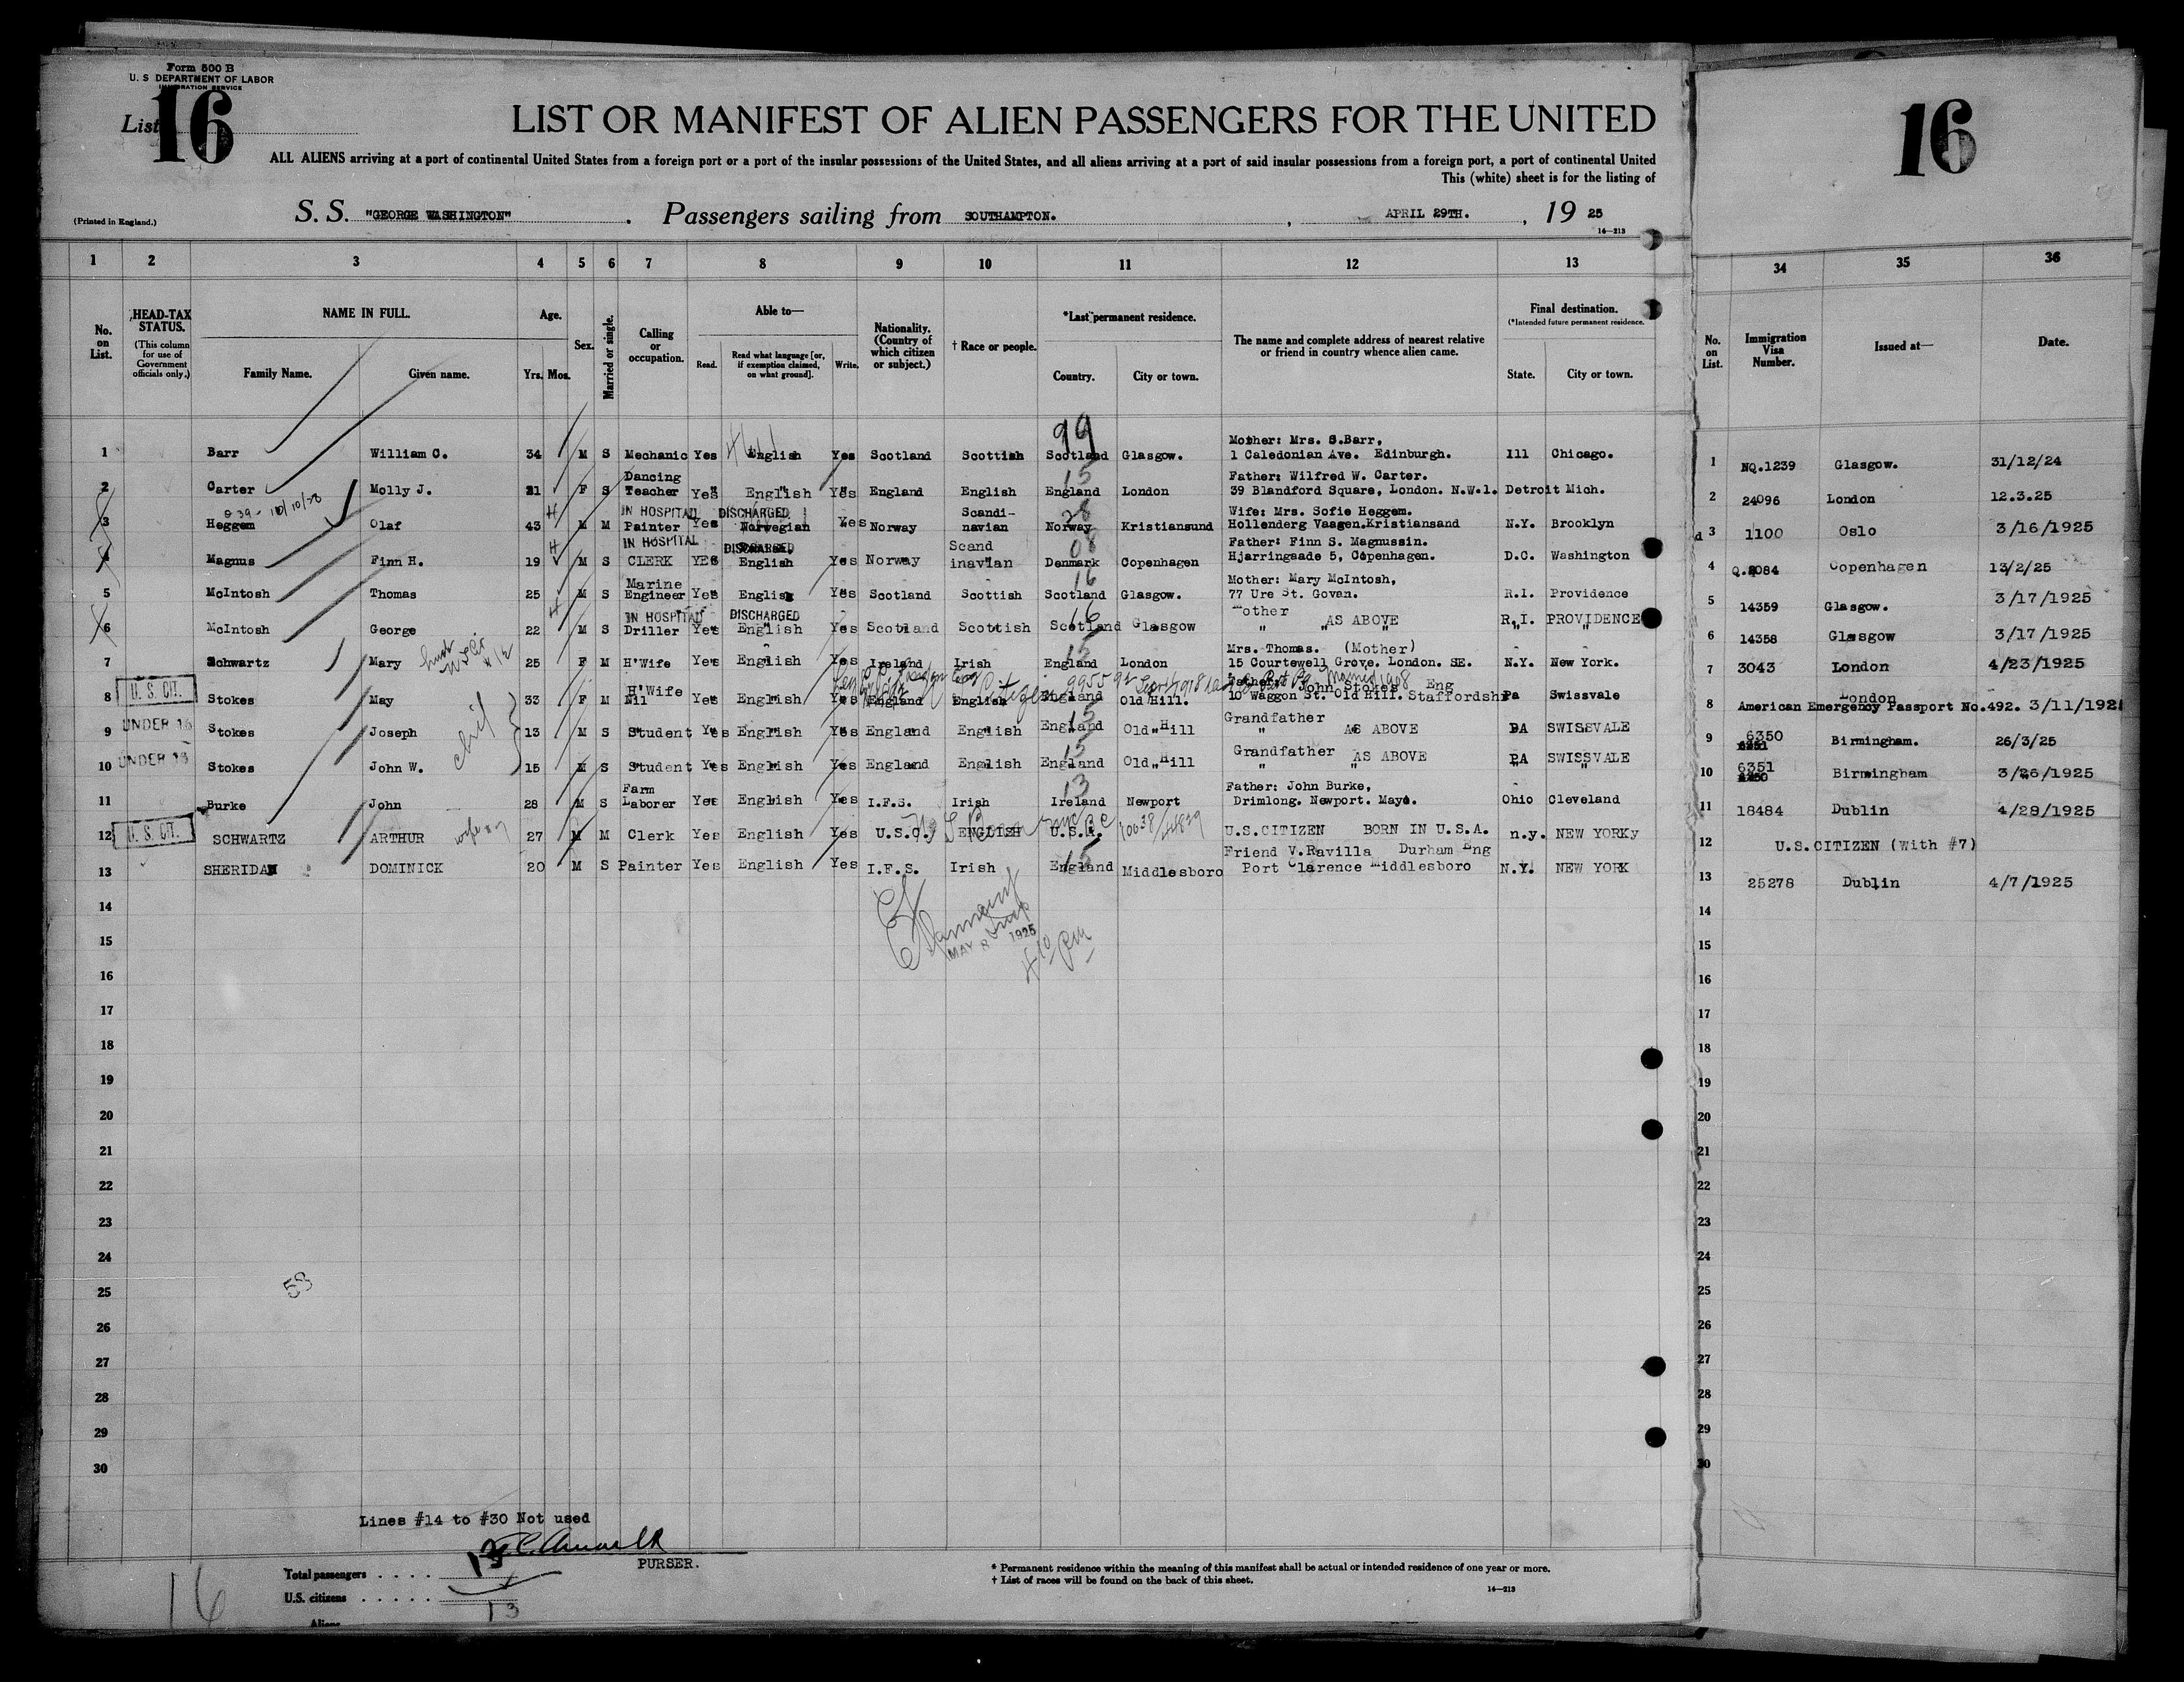 Form 500 B
U. S. DEPARTMENT OF LABOR
IMMIGRATION SERVICE
List 16
LIST OR MANIFEST OF ALIEN PASSENGERS FOR THE UNITED
16
ALL ALIENS arriving at a port of continental United States from a foreign port or a port of the insular possessions of the United States, and all aliens arriving at a port of said insular possessions from a foreign port, a port of continental United
This (white) sheet is for the listing of
(Printed in England.) S. S. "GEORGE WASHINGTON" . Passengers sailing from SOUTHAMPTON. , APRIL 29TH. , 19 25
14—213
1 2 3 4 5 6 7 8 9 10 11 12 13 34 35 36
No. on List.
HEAD-TAX STATUS.
(This column for use of Government officials only.)
NAME IN FULL.
Family Name. Given name.
Age.
Yrs. Mos.
Sex.
Married or single.
Calling or occupation.
Able to—
Read. Read what language [or, if exemption claimed, on what ground]. Write.
Nationality. (Country of which citizen or subject.)
† Race or people.
*Last permanent residence.
Country. City or town.
The name and complete address of nearest relative or friend in country whence alien came.
Final destination.
(*Intended future permanent residence.
State. City or town.
No. on List.
Immigration Visa Number.
Issued at—
Date.
99
Mother: Mrs. S.Barr,
1 Barr William C. 34 M S Mechanic Yes English Yes Scotland Scottish Scotland Glasgow. 1 Caledonian Ave. Edinburgh. Ill Chicago. 1 NQ.1239 Glasgow. 31/12/24
Dancing 15 Father: Wilfred W. Carter.
2 Carter Molly J. 21 F S Teacher Yes English Yes England English England London 39 Blandford Square, London. N.W.1. Detroit Mich. 2 24096 London 12.3.25
IN HOSPITAL DISCHARGED Scandi- 28 Wife: Mrs. Sofie Heggem.
3 Heggem Olaf 43 M M Painter Yes Norwegian Yes Norway navian Norway Kristiansund Hollenderg Vaagen.Kristiansand N.Y. Brooklyn 3 1100 Oslo 3/16/1925
IN HOSPITAL DISCHARGED Scand 08 Father: Finn S. Magnussin.
4 Magnus Finn H. 19 M S CLERK YES English Yes Norway inavian Denmark Copenhagen Hjarringaade 5, Copenhagen. D.C. Washington 4 Q.2084 Copenhagen 13/2/25
Marine 16 Mother: Mary McIntosh,
5 McIntosh Thomas 25 M S Engineer Yes English Yes Scotland Scottish Scotland Glasgow. 77 Ure St. Govan. R.I. Providence 5 14359 Glasgow. 3/17/1925
IN HOSPITAL DISCHARGED 16 Mother
6 McIntosh George 22 M S Driller Yes English Yes Scotland Scottish Scotland Glasgow " AS ABOVE R.I. PROVIDENCE 6 14358 Glasgow 3/17/1925
15 Mrs. Thomas. (Mother)
7 Schwartz Mary 25 F M H'Wife Yes English Yes Ireland Irish England London 15 Courtewell Grove. London. SE. N.Y. New York. 7 3043 London 4/23/1925
U. S. CIT. H'Wife John Stokes Eng
8 Stokes May 33 F M Nil Yes English Yes England English England Old Hill. 10 Waggon St. Old Hill. Staffordsh Pa Swissvale London
8 American Emergency Passport No.492. 3/11/192
UNDER 16 15 Grandfather
9 Stokes Joseph 13 M S Student Yes English Yes England English England Old Hill " AS ABOVE PA SWISSVALE 9 6350 Birmingham. 26/3/25
UNDER 16 15 Grandfather
10 Stokes John W. 15 M S Student Yes English Yes England English England Old Hill " AS ABOVE PA SWISSVALE 10 6351 Birmingham 3/26/1925
Farm 13 Father: John Burke,
11 Burke John 28 M S Laborer Yes English Yes I.F.S. Irish Ireland Newport Drimlong. Newport. Mayo. Ohio Cleveland 11 18484 Dublin 4/28/1925
U. S. CIT.
12 SCHWARTZ ARTHUR 27 M M Clerk Yes English Yes U.S.C. ENGLISH U.S.A. U.S.CITIZEN BORN IN U.S.A. n.y. NEW YORKy 12 U.S.CITIZEN (With #7)
15 Friend V.Ravilla Durham Eng
13 SHERIDAN DOMINICK 20 M S Painter Yes English Yes I.F.S. Irish England Middlesboro Port Clarence Middlesboro N.Y. NEW YORK 13 25278 Dublin 4/7/1925
14 14
15 MAY 8 1925 15
4 10 PM
16 16
17 17
18 18
19 19
20 20
21 21
22 22
23 23
24 24
25 53 25
26 26
27 27
28 28
29 29
30 30
Lines #14 to #30 Not used
PURSER.
Total passengers . . . . 13
U.S. citizens . . . . .
13
Aliens
16
* Permanent residence within the meaning of this manifest shall be actual or intended residence of one year or more.
† List of races will be found on the back of this sheet.
14—213